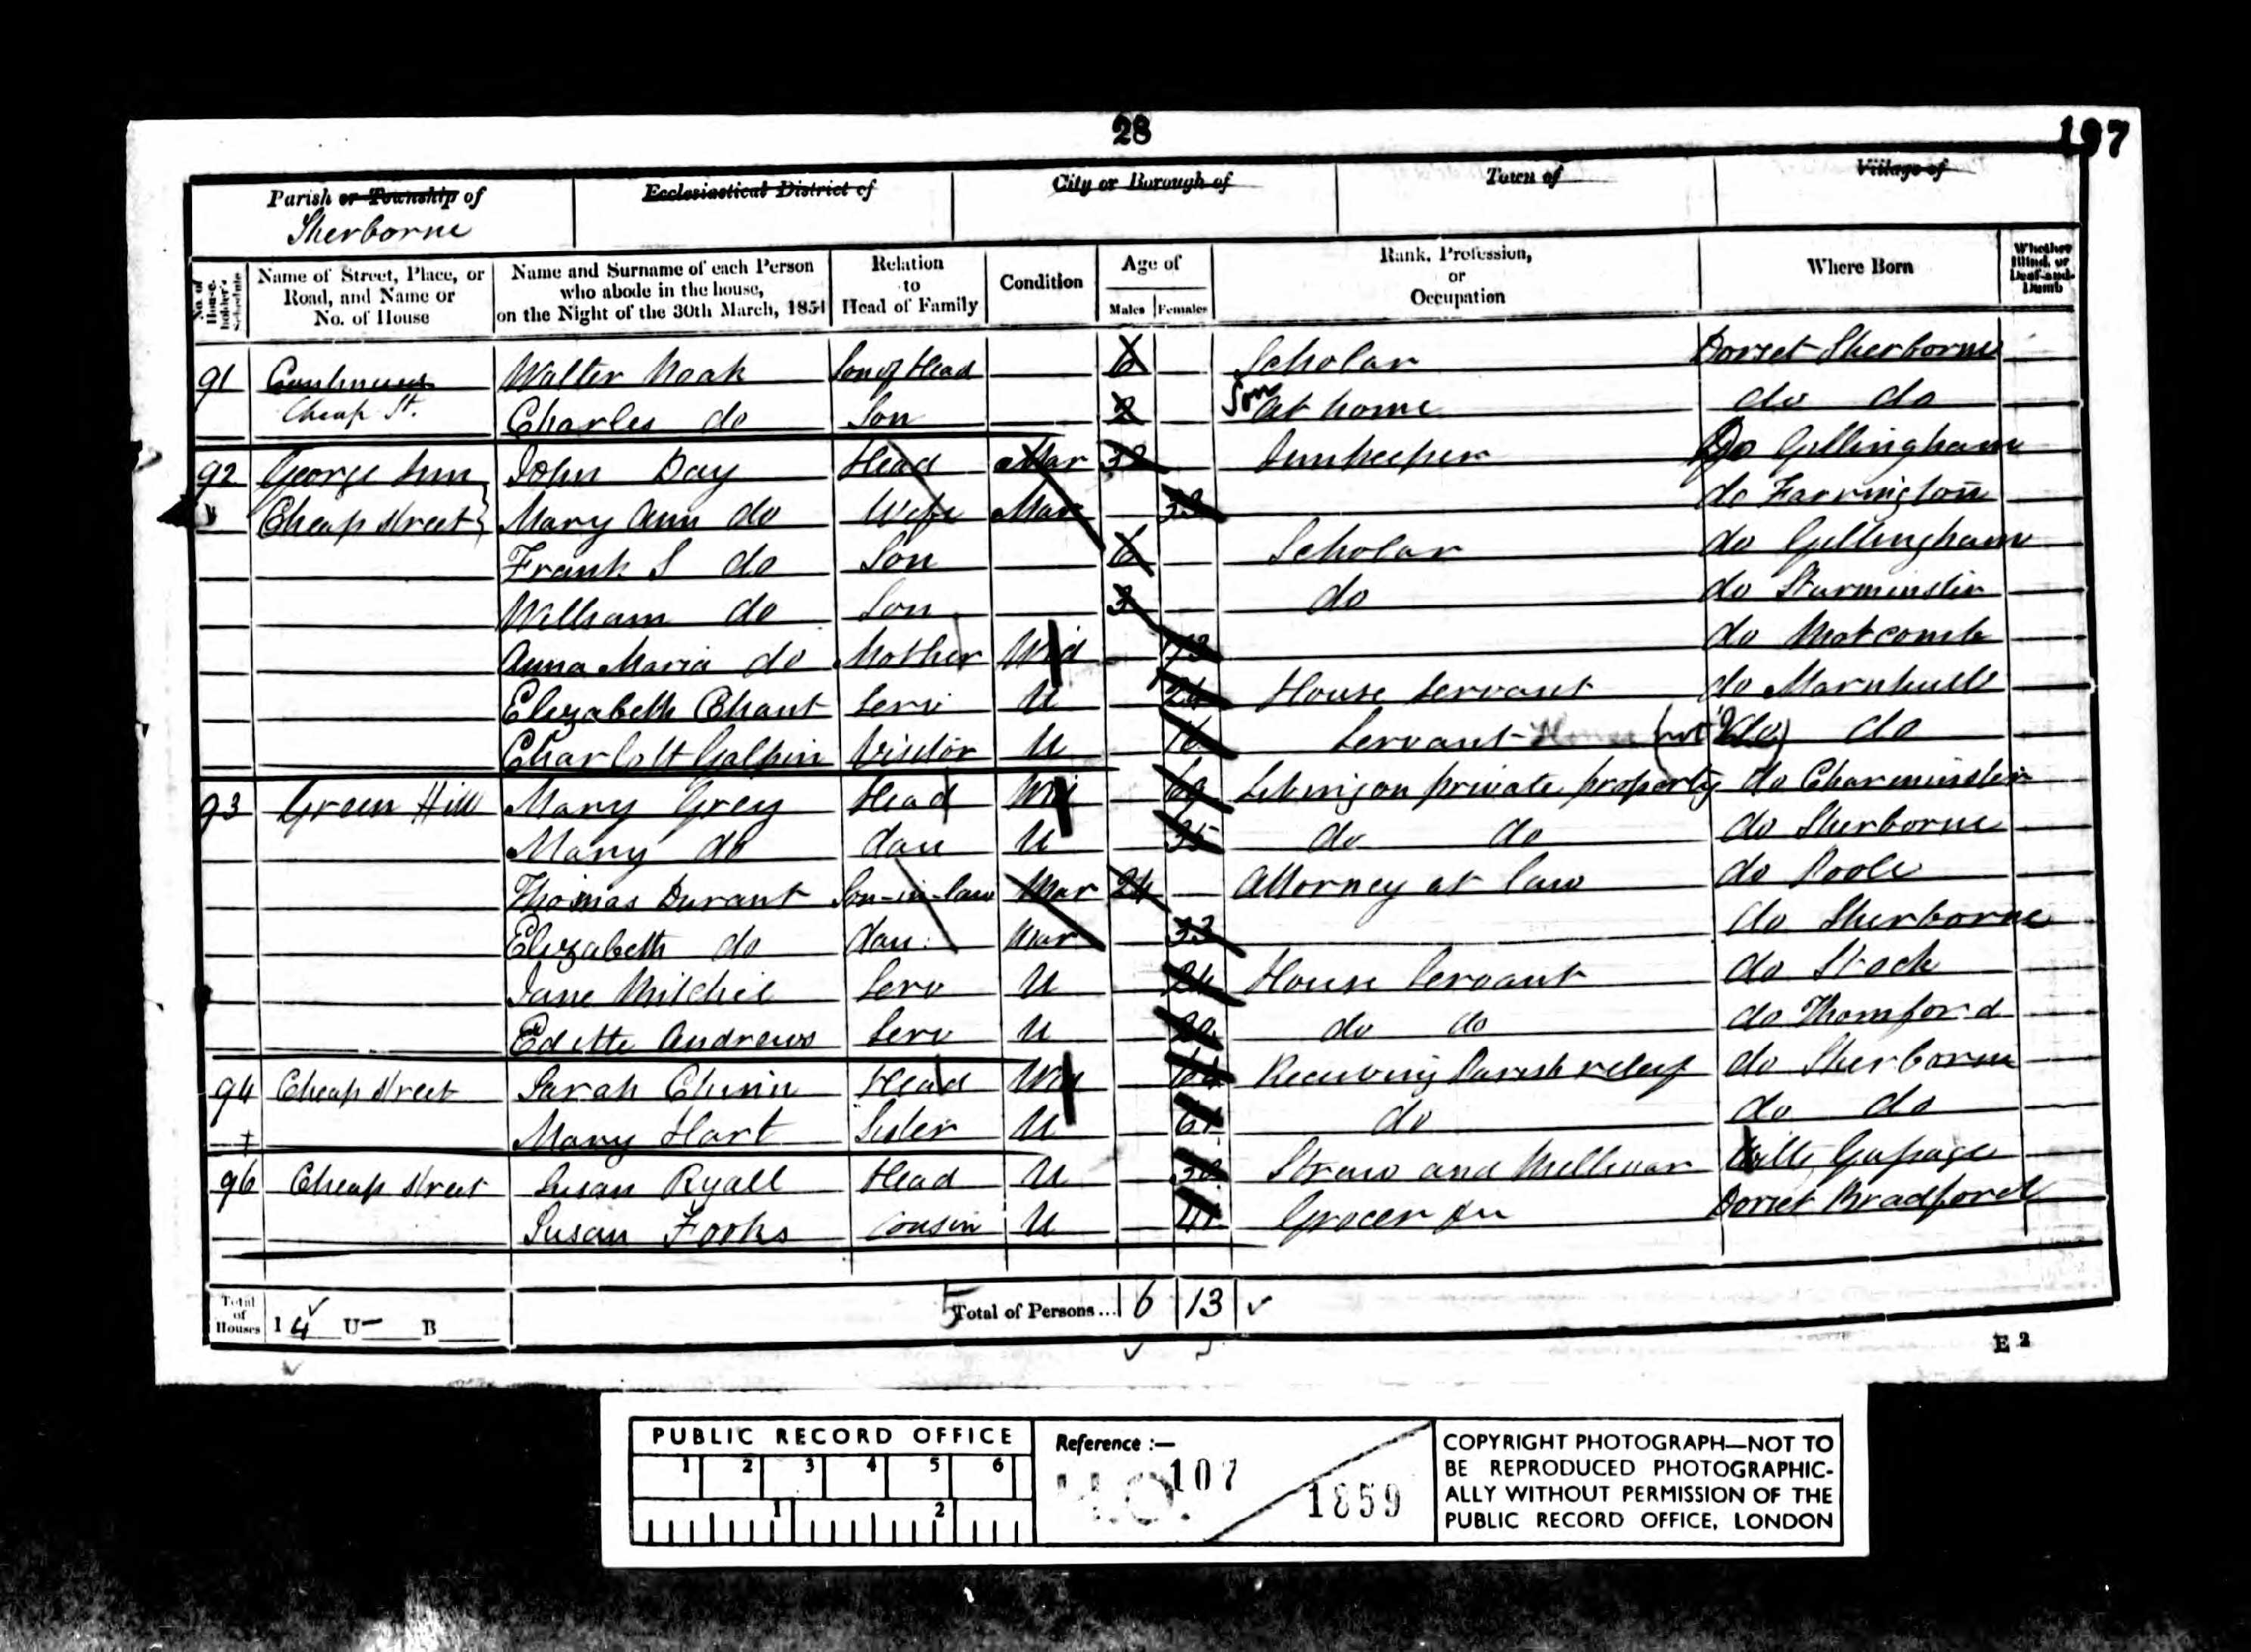 28
197
Parish or Township of Ecclesiastical District of City or Borough of Town of Village of
Sherborne
No. of House-holder's Schedule Name of Street, Place, or Road, and Name or No. of House Name and Surname of each Person who abode in the house, on the Night of the 30th March, 1851 Relation to Head of Family Condition Age of Males Females Rank, Profession, or Occupation Where Born Whether Blind, or Deaf-and-Dumb
91 Continued Walter Noak Son of Head 6 Scholar Dorset Sherborne
Cheap St. Charles do Son 2 Son at home do do
92 George Inn John Day Head Mar 32 Innkeeper Do Gillingham
Cheap Street Mary Ann do Wife Mar 32 do Farrington
Frank S do Son 6 Scholar do Gillingham
William do Son 3 do do Sturminster
Anna Maria do Mother Wid 73 do Motcomb
Elizabeth Chant Serv U 24 House Servant do Marnhull
Charlott Galpin Visitor U 16 Servant do do
93 Green Hill Mary Grey Head Wid 69 Living on private property do Charminster
Mary do dau U 35 do do do Sherborne
Thomas Durant Son-in-law Mar 24 Attorney at law do Poole
Elizabeth do dau: Mar 33 do Sherborne
Jane Mitchel Serv U 24 House Servant do Stock
Edette Andrews Serv U do do do Thornford
94 Cheap Street Sarah Chinn Head Wid Receiving Parish relief do Sherborne
Mary Hart Sister U 61 do do do
96 Cheap Street Susan Ryall Head U Straw and Millinar Wilts
Susan Fooks Cousin U 41 Grocer Dorset Bradford
Total of Houses I 4 U – B 5 Total of Persons... 6 13
E 2
PUBLIC RECORD OFFICE
1 2 3 4 5 6
1 2
Reference :—
H.O. 107 / 1859
COPYRIGHT PHOTOGRAPH—NOT TO
BE REPRODUCED PHOTOGRAPHIC-
ALLY WITHOUT PERMISSION OF THE
PUBLIC RECORD OFFICE, LONDON